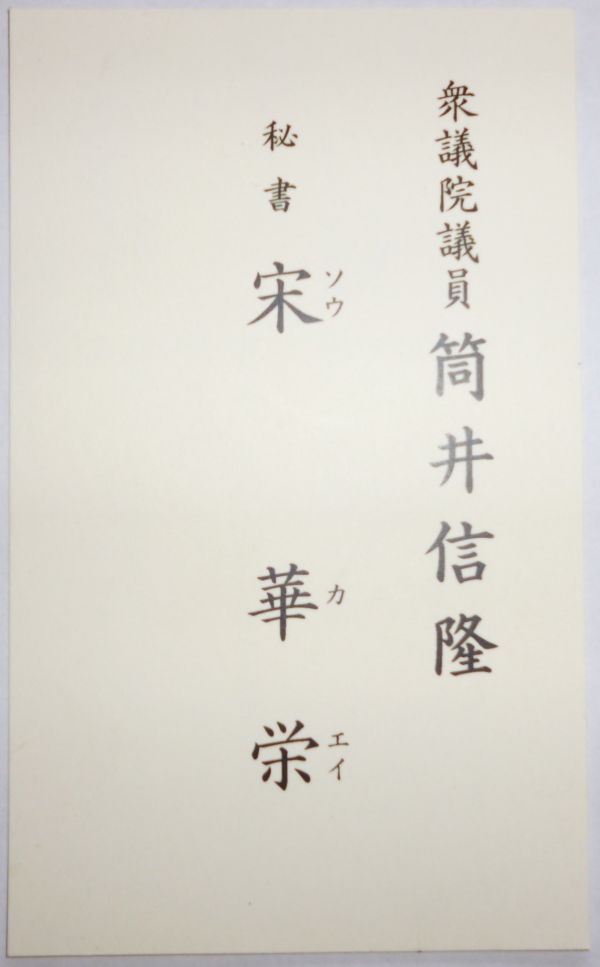 衆議院議員 筒井信隆
秘書 宋 華 栄
ソウ カ エイ